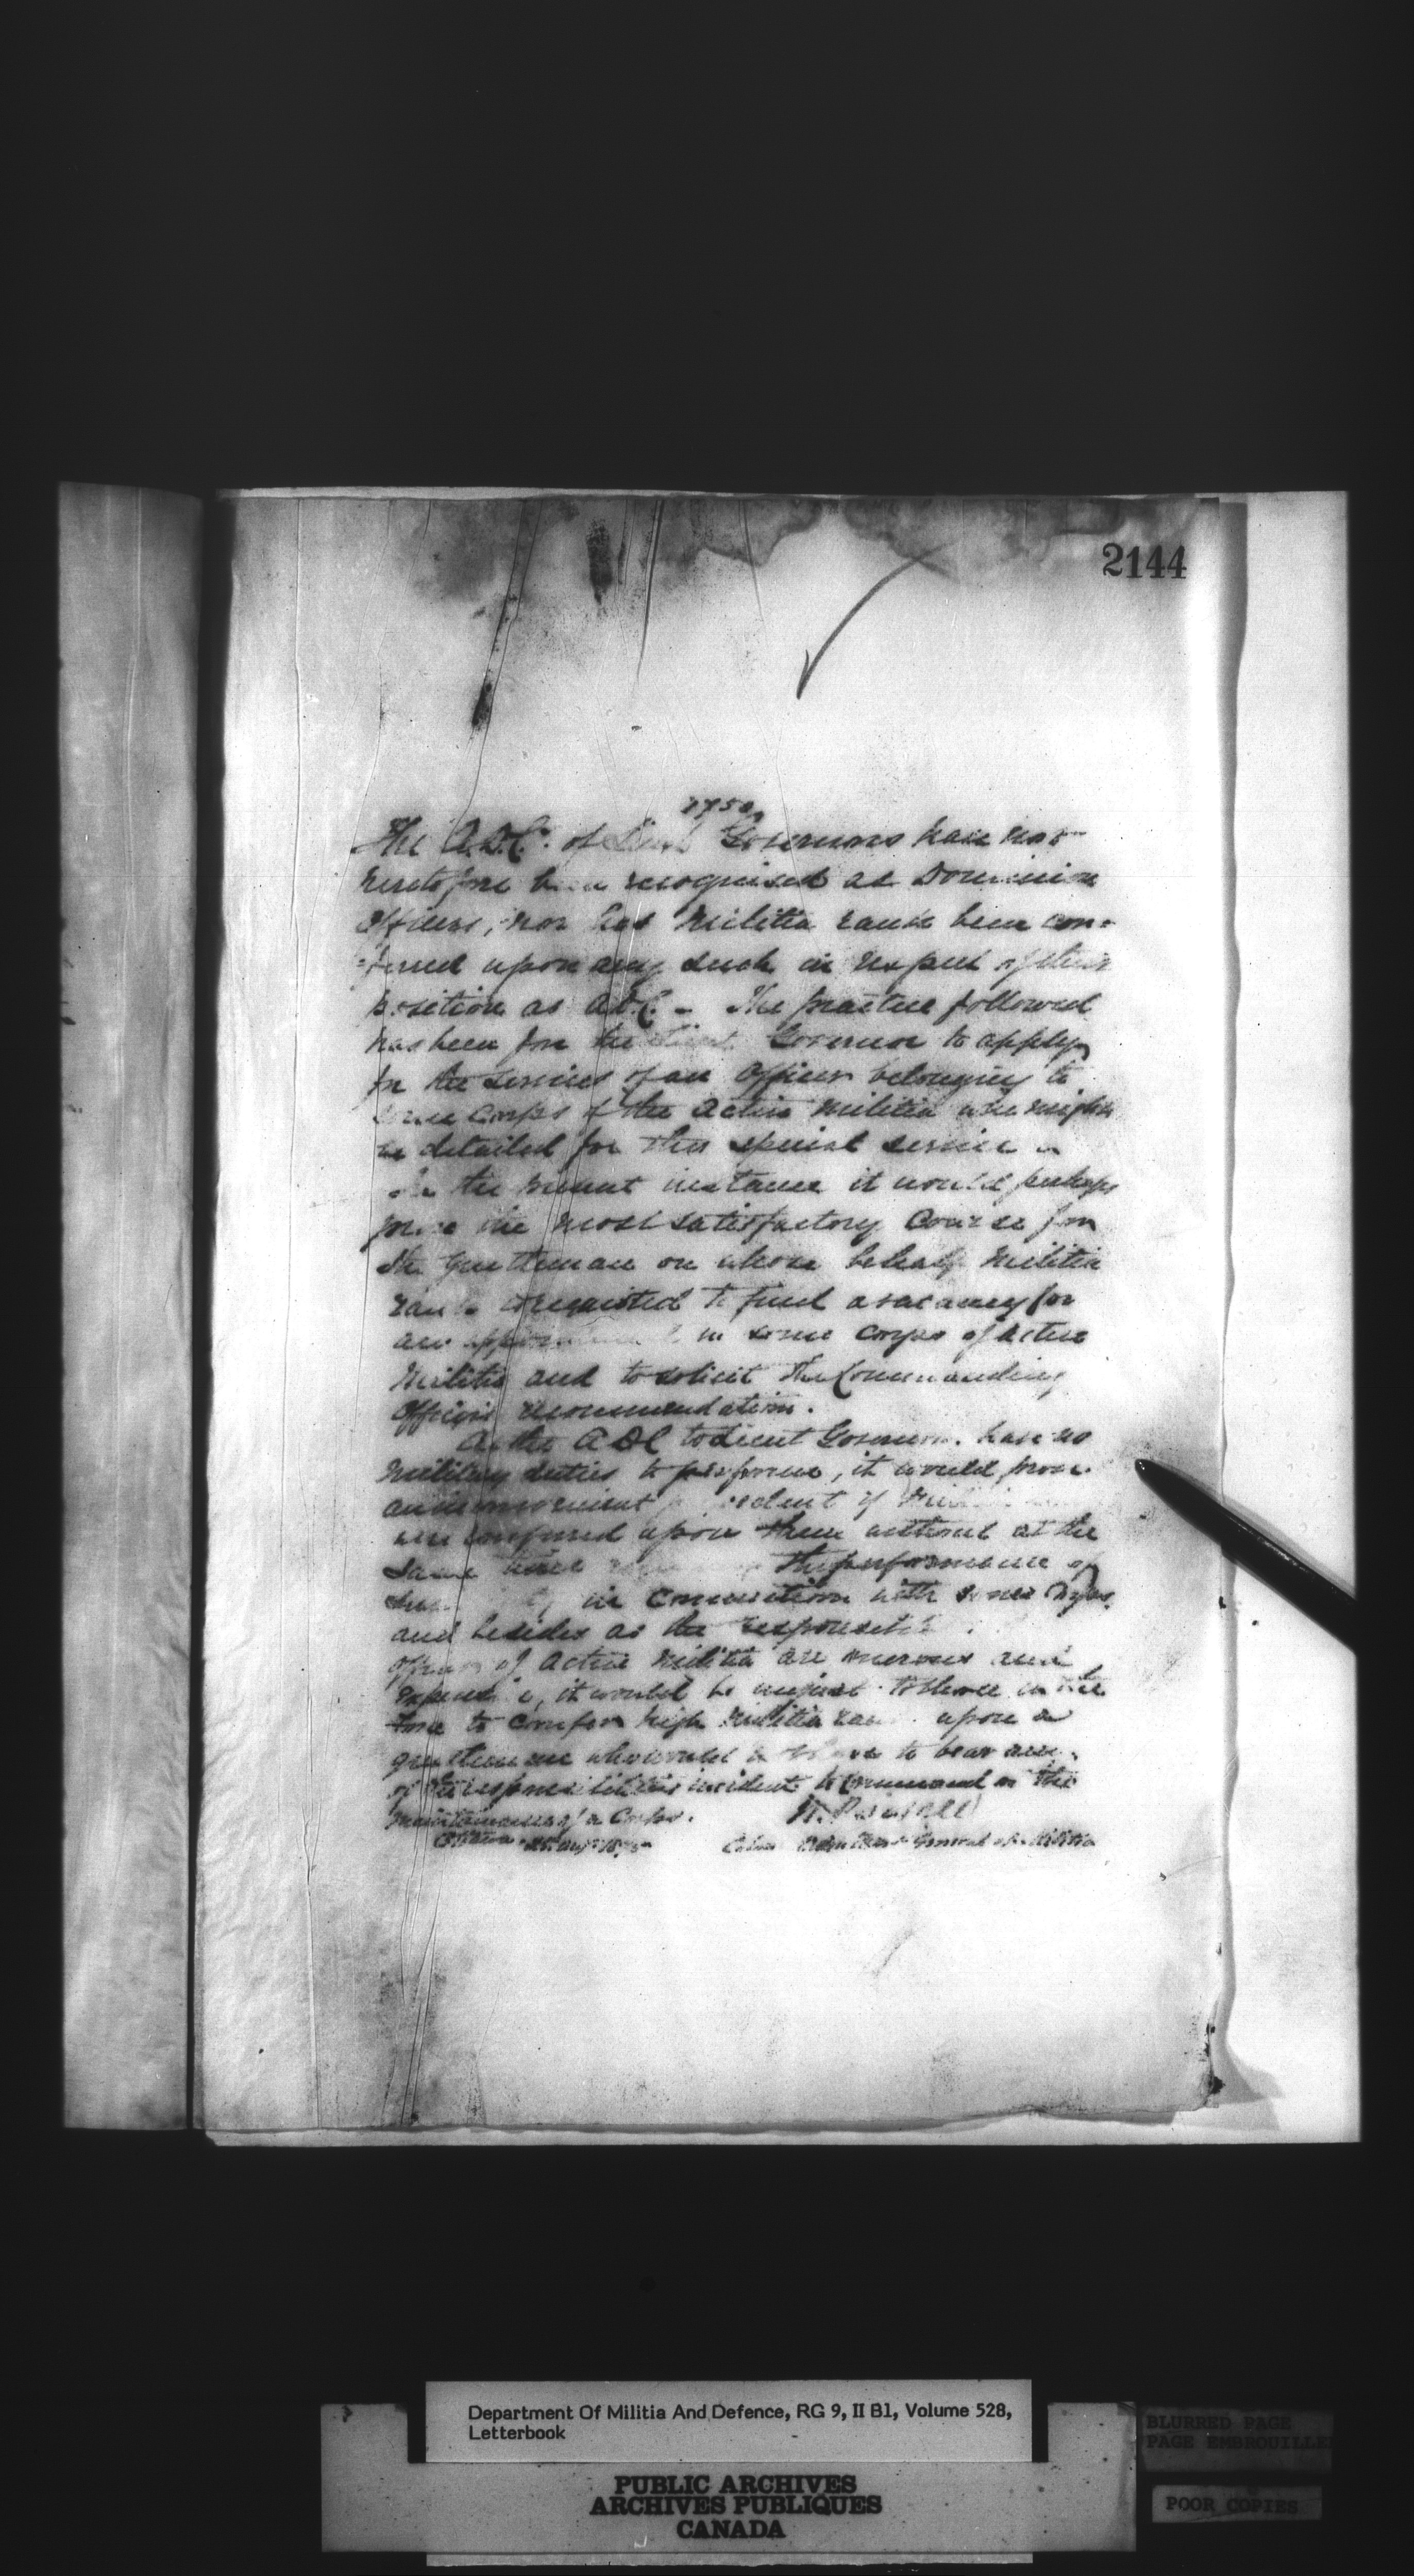 2144
The A.D.C. of Lieut Governors have not
heretofore been recognised as Dominion
Officers, nor has Militia rank been con-
-ferred upon any such in respect of their
position as A.D.C. - The practice followed
has been for the Lieut. Governor to apply
for the services of an Officer belonging to
some Corps of the Active Militia who might
be detailed for this special service
In the present instance it would perhaps
prove the most satisfactory course for
the gentleman on whose behalf Militia
rank is requested to find a vacancy for
an appointment in some Corps of Active
Militia and to solicit the Commanding
Officers recommendation.
As the ADC to Lieut Governors have no
Military duties to perform, it would prove
an inconvenient precedent if
were conferred upon them without at the
same time the performance of
in connection with some Corps.
and besides as the
Officers of Active Militia are onerous and
expensive, it would be unjust to those in the
force to confer high Militia rank upon a
gentleman who would to bear any
of the responsibilities incident to command or the
maintenance of a Corps.
W. Powell
Ottawa
Colonel Adjutant General of Militia
Department Of Militia And Defence, RG 9, II B1, Volume 528,
Letterbook
BLURRED PAGE
PAGE EMBROUILLE
PUBLIC ARCHIVES
ARCHIVES PUBLIQUES
CANADA
POOR COPIES